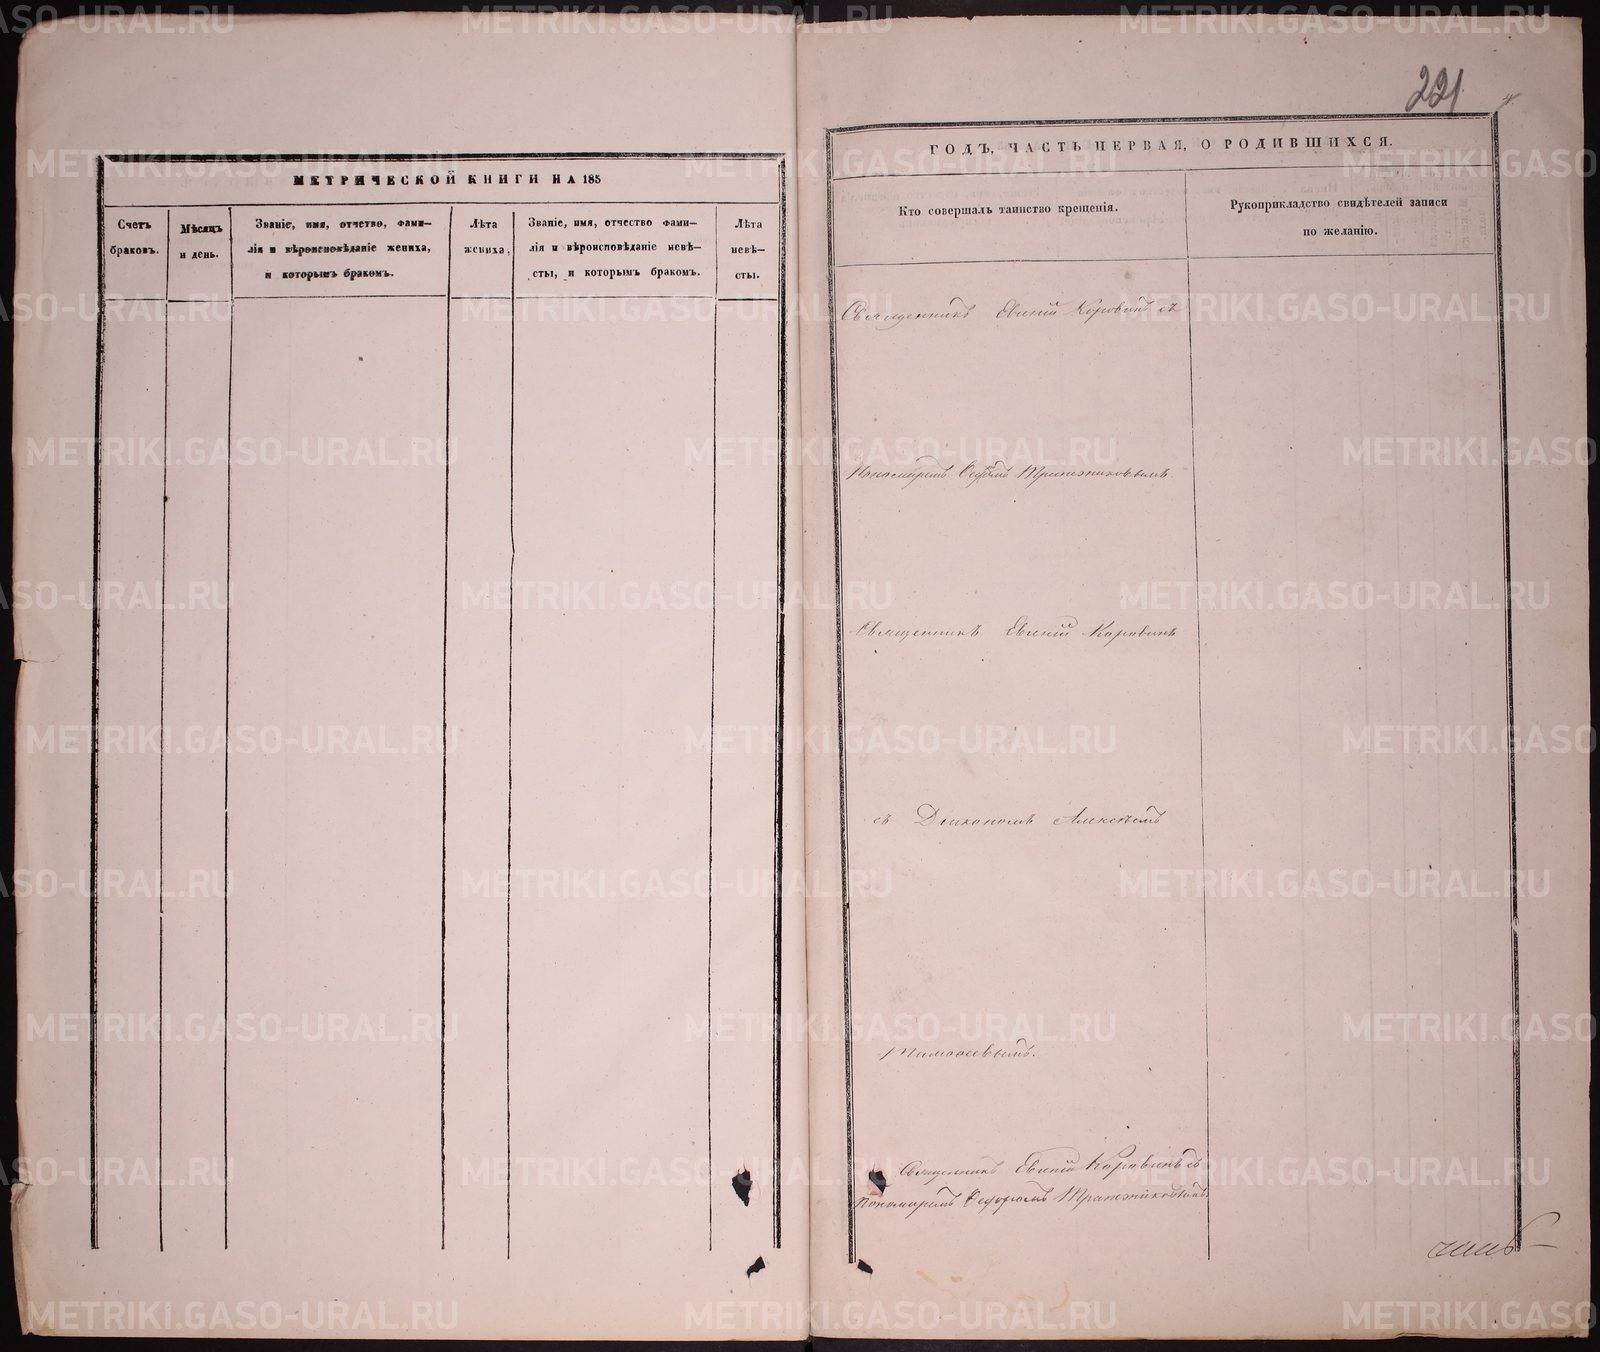 221
МЕТРИЧЕСКОЙ КНИГИ НА 185
Счетъ браковъ.
Мѣсяцъ и день.
Званіе, имя, отчетво, фами-
лія и вѣроисповѣданіе жениха,
и которымъ бракомъ.
Лѣта
жениха.
Званіе, имя, отчество фами-
лія и вѣроисповѣданіе невѣ-
сты, и которымъ бракомъ.
Лѣта
невѣ-
сты.
ГОДЪ, ЧАСТЬ ПЕРВАЯ, О РОДИВШИХСЯ.
Кто совершалъ таинство крещенія.
Рукоприкладство свидѣтелей записи
по желанію.
Священникъ Евгеній Коровинъ съ
Пономаремъ Ѳедоромъ Трапезниковымъ
Священникъ Евгеній Коровинъ
съ Діакономъ Алексѣемъ
Тимоѳеевымъ.
Священникъ Евгеній Коровинъ съ
Пономаремъ Ѳедоромъ Трапезниковымъ.
METRIKI.GASO-URAL.RU